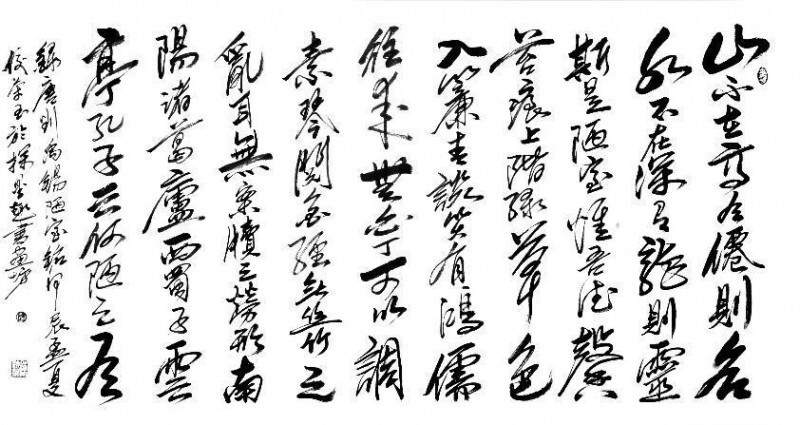 山不在高有僊則名
水不在深有龍則靈
斯是陋室惟吾德馨
苔痕上階綠草色
入簾青談笑有鴻儒
往來無白丁可以調
素琴閱金經無絲竹之
亂耳無案牘之勞形南
陽諸葛廬西蜀子雲
亭孔子云何陋之有
錄唐劉禹錫陋室銘辰孟夏
於書畫坊